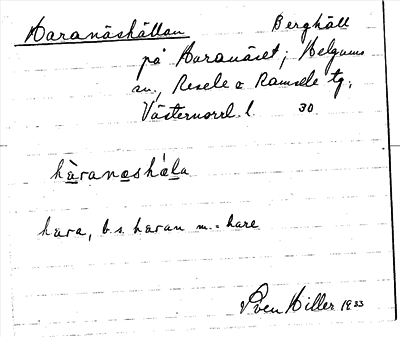 Haranäshällan Berghäll
på Haranäset; Helgums
sn, Resele o Ramsele tg,
Västernorrl. l. 30
hàranashála
hara, b. s. haran m. = hare
Sven Hiller 1933